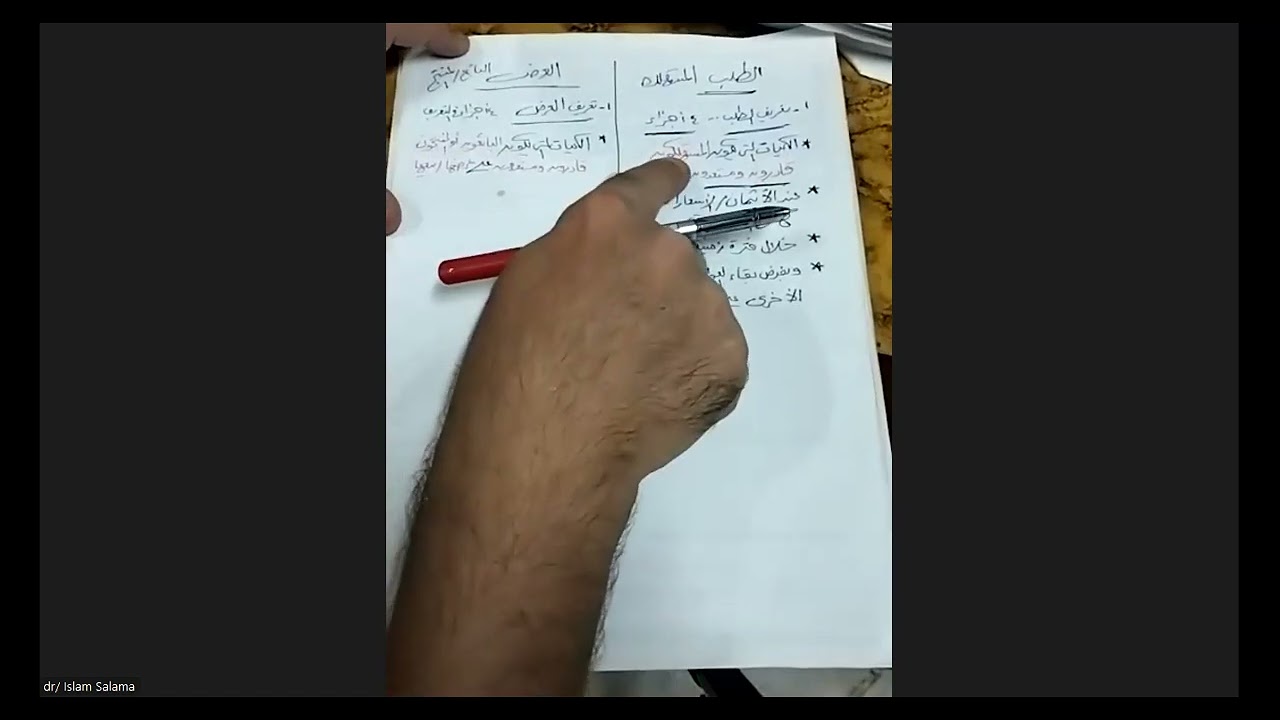 الطلب المستهلك
١- تعريف الطلب .. ٤ أجزاء
* الكميات التي يكون المستهلكون
قادرون ومستعدون
* عند الأثمان / الأسعار
* خلال فترة زمنية
* وبفرض بقاء العوامل
الأخرى
العرض البائع / المنتج
١- تعريف العرض ٤ أجزاء في التعريف
* الكميات التي يكون البائعون أو المنتجون
قادرون ومستعدون على
dr/ Islam Salama